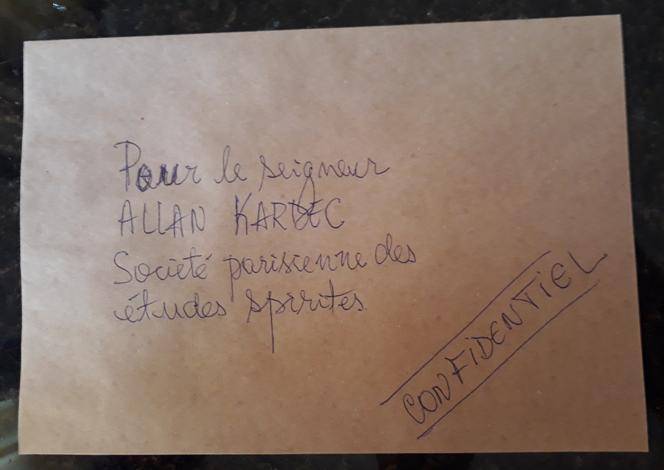 Pour le seigneur
ALLAN KARDEC
Societé parisienne des
études spirites
CONFIDENTIEL